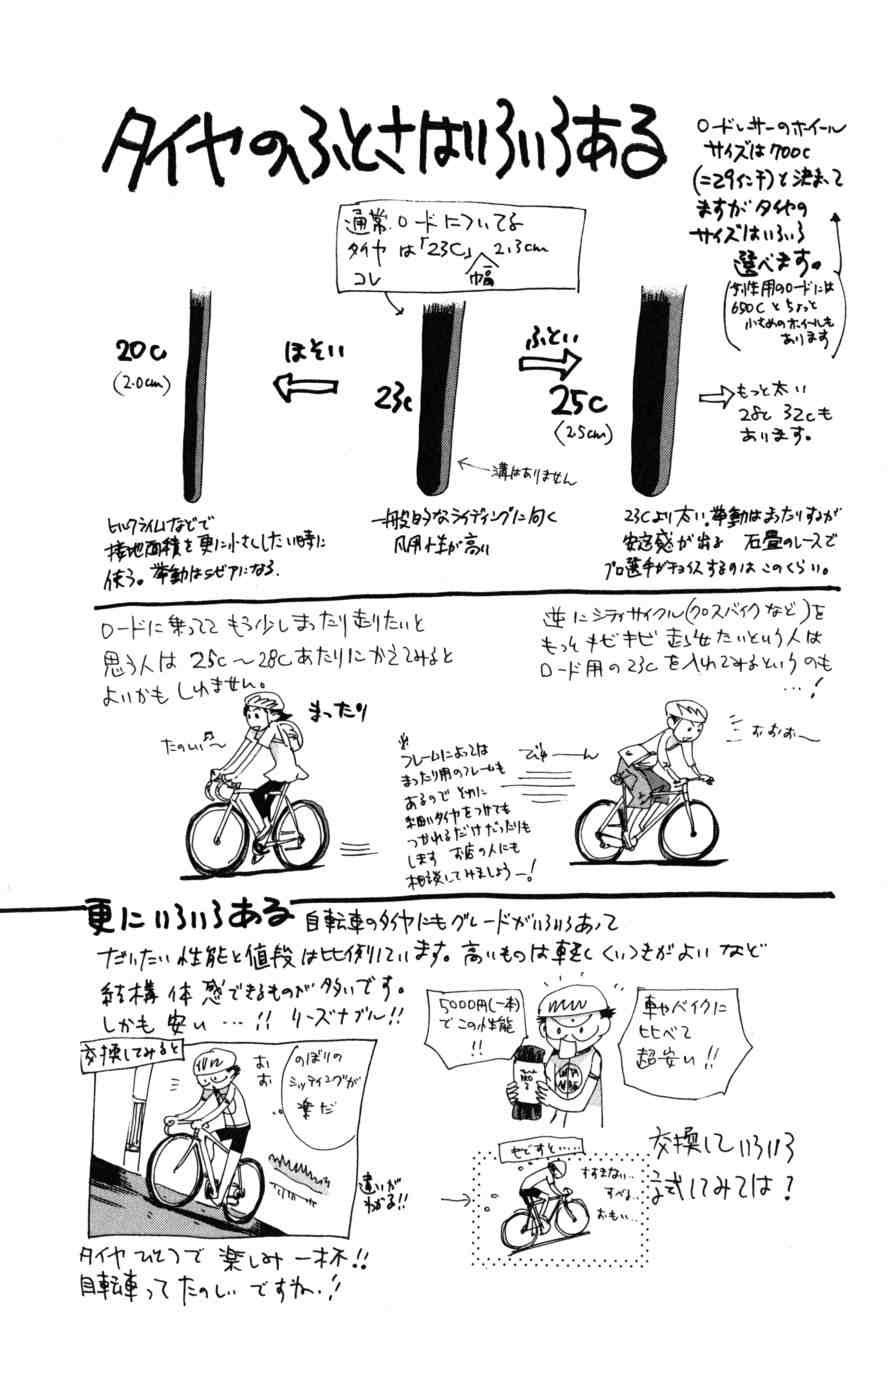 タイヤのふとさはいろいろある
ロードレーサーのホイール
サイズは700c
(=29インチ)と決まって
ますがタイヤの
サイズはいろいろ
選べます。
(女性用のロードには
650Cとちょっと
小さめのホイールも
あります)
通常ロードについてる
タイヤは「23C」2.3cm
コレ
幅
20c
(2.0cm)
ほそい
23c
ふとい
25c
(2.5cm)
もっと太い
28c 32cも
あります。
溝はありません
ヒルクライムなどで
接地面積を更に小さくしたい時に
使う。挙動はシビアになる.
一般的なライディングに向く
汎用性が高い
23Cより太い。挙動はまったりするが
安定感が出る 石畳のレースで
プロ選手がチョイスするのはこのくらい。
ロードに乗っててもう少しまったり走りたいと
思う人は25c〜28cあたりにかえてみると
よいかもしれません。
逆にシティサイクル(クロスバイクなど)を
もっとキビキビ走らせたいという人は
ロード用の23cを入れてみるというのも
…!
まったり
たのしい〜
※
フレームによっては
まったり用のフレームも
あるので それに
細いタイヤをつけても
つかれるだけだったりも
します お店の人にも
相談してみましょうー!
びゅーーん
おおお〜
更にいろいろある
自転車のタイヤにもグレードがいろいろあって
だいたい性能と値段は比例しています。高いものは軽く くいつきがよい など
結構 体感できるものが多いです。
しかも 安い…!! リーズナブル!!
5000円(一本)
でこの性能
!!
車やバイクに
比べて
超安い!!
交換してみると
おお
のぼりの
シッティングが
楽だ
違いが
わかる!!
もどすと……
すすまない…
すべる…
おもい…
交換していろいろ
試してみては?
タイヤひとつで楽しみ一杯!!
自転車ってたのしいですね.!